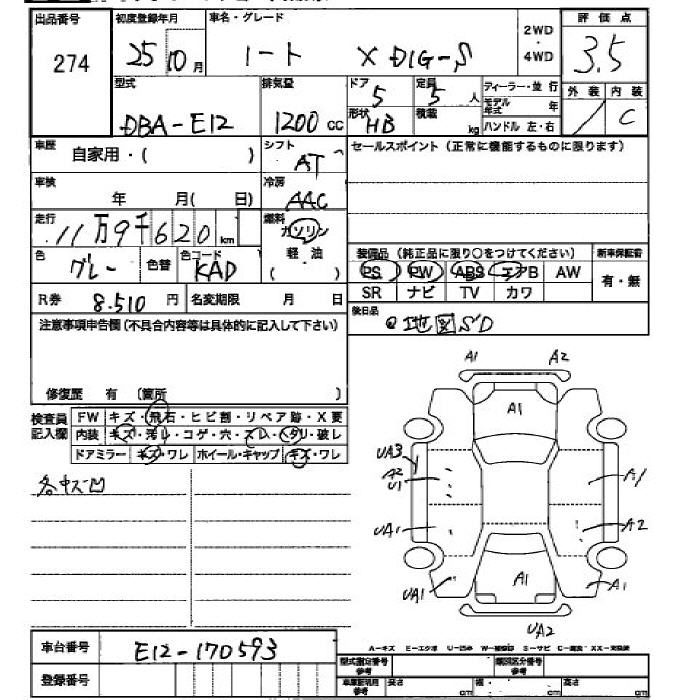 出品番号 初度登録年月 車名・グレード 2WD・4WD 評価点
274 25 10月 ノート X DIG-S 3.5
型式 排気量 ドア 定員 ディーラー・並行 外装 内装
DBA-E12 1200cc 5 5人 モデル年式 年 / C
形状 HB 積載 kg ハンドル 左・右
車歴 自家用・( ) シフト AT セールスポイント(正常に機能するものに限ります)
車検 年 月( 日) 冷房 AAC
走行 11万9千620km 燃料 ガソリン
軽油
( )
色 グレー 色替 色コード KAD
装備品(純正品に限り○をつけてください) 新車保証書
PS PW ABS エアB AW 有・無
SR ナビ TV カワ
R券 8.510円 名変期限 月 日
後日品 @地図SD
注意事項申告欄(不具合内容等は具体的に記入して下さい)
修復歴 有 (箇所 )
検査員記入欄 FW キズ・飛石・ヒビ割・リペア跡・X要
内装 キズ・汚レ・コゲ・穴・スレ・ヘタリ・破レ
ドアミラー キズ・ワレ ホイール・キャップ キズ・ワレ
各キズ凹
A1 A2
A1
UA3
A2
U1
A1
UA1 A2
UA1 A1 A1
UA2
A-キズ E-エクボ U-凹み W-補修跡 S-サビ C-腐食 XX-交換済
車台番号 E12-170593
登録番号
型式指定番号 参考 類別区分番号 参考
車庫証明用 参考 長さ cm 幅 cm 高さ cm